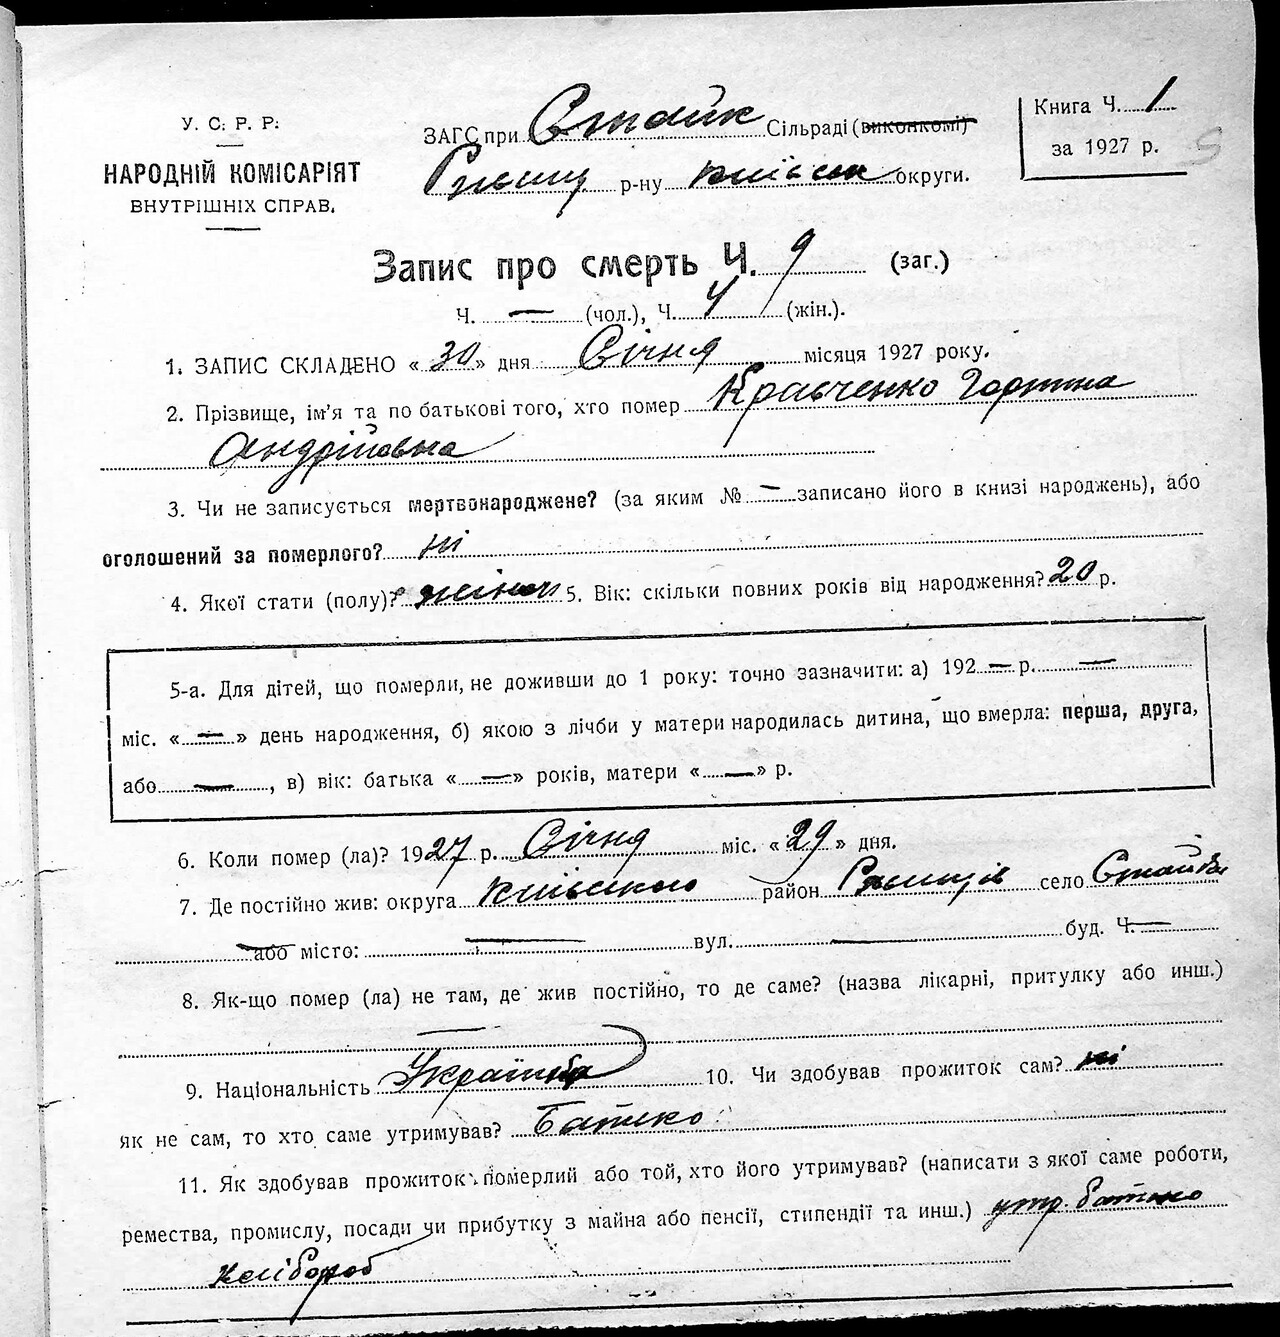 У. С. Р. Р.
НАРОДНІЙ КОМІСАРІЯТ
ВНУТРІШНІХ СПРАВ.
ЗАГС при Стайк Сільраді (виконкомі)
р-ну Київськ округи.
Книга Ч. 1
за 1927 р.
Запис про смерть Ч. 9 (заг.)
Ч. — (чол.), Ч. 4 (жін.).
1. ЗАПИС СКЛАДЕНО «30» дня Січня місяця 1927 року.
2. Прізвище, ім'я та по батькові того, хто помер Кравченко Горпина
Андрійовна
3. Чи не записується мертвонароджене? (за яким № — записано його в книзі народжень), або
оголошений за померлого? ні
4. Якої стати (полу)? жіноч 5. Вік: скільки повних років від народження? 20 р.
5-а. Для дітей, що померли, не доживши до 1 року: точно зазначити: а) 192 — р. —
міс. « — » день народження, б) якою з лічби у матери народилась дитина, що вмерла: перша, друга,
або — , в) вік: батька « — » років, матери « — » р.
6. Коли помер (ла)? 1927 р. Січня міс. «29» дня.
7. Де постійно жив: округа Київського район Ржищів село Стайки
або місто: — вул. — буд. Ч. —
8. Як-що помер (ла) не там, де жив постійно, то де саме? (назва лікарні, притулку або инш.)
—
9. Національність Українка 10. Чи здобував прожиток сам? ні
як не сам, то хто саме утримував? Батько
11. Як здобував прожиток померлий або той, хто його утримував? (написати з якої саме роботи,
ремества, промислу, посади чи прибутку з майна або пенсії, стипендії та инш.) утр. батько
хлібороб